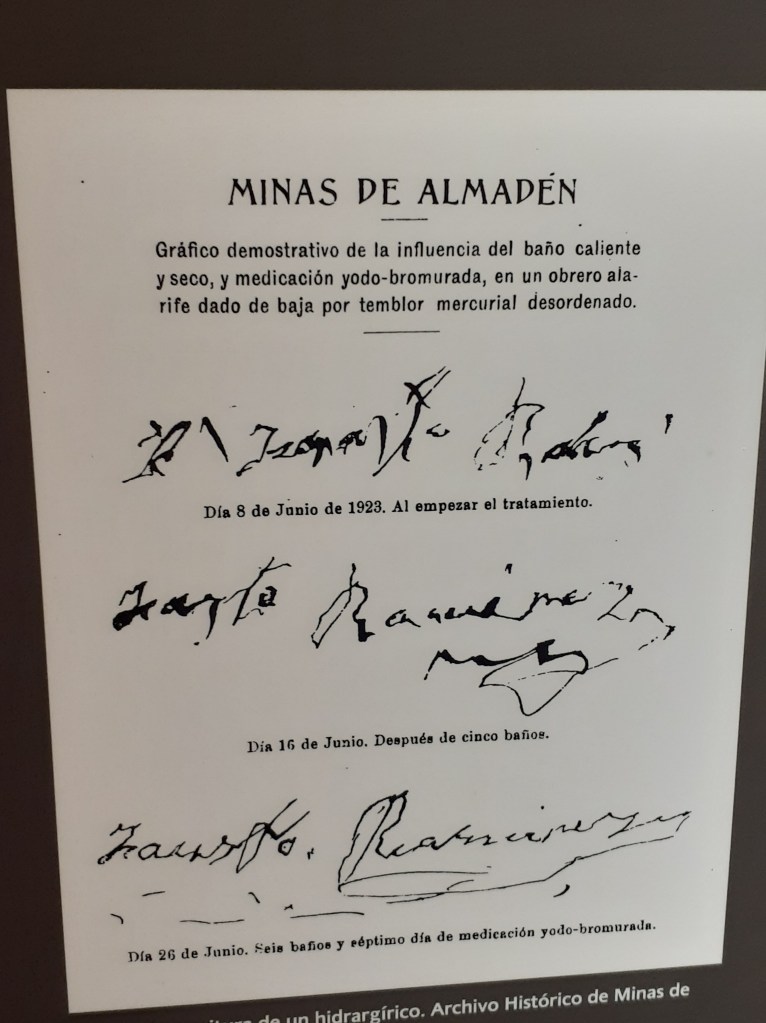 MINAS DE ALMADÉN
Gráfico demostrativo de la influencia del baño caliente
y seco, y medicación yodo-bromurada, en un obrero ala-
rife dado de baja por temblor mercurial desordenado.
Día 8 de Junio de 1923. Al empezar el tratamiento.
Ramírez
Día 16 de Junio. Después de cinco baños.
Fausto. Ramirez
Día 26 de Junio. Seis baños y séptimo día de medicación yodo-bromurada.
de un hidrargírico. Archivo Histórico de Minas de